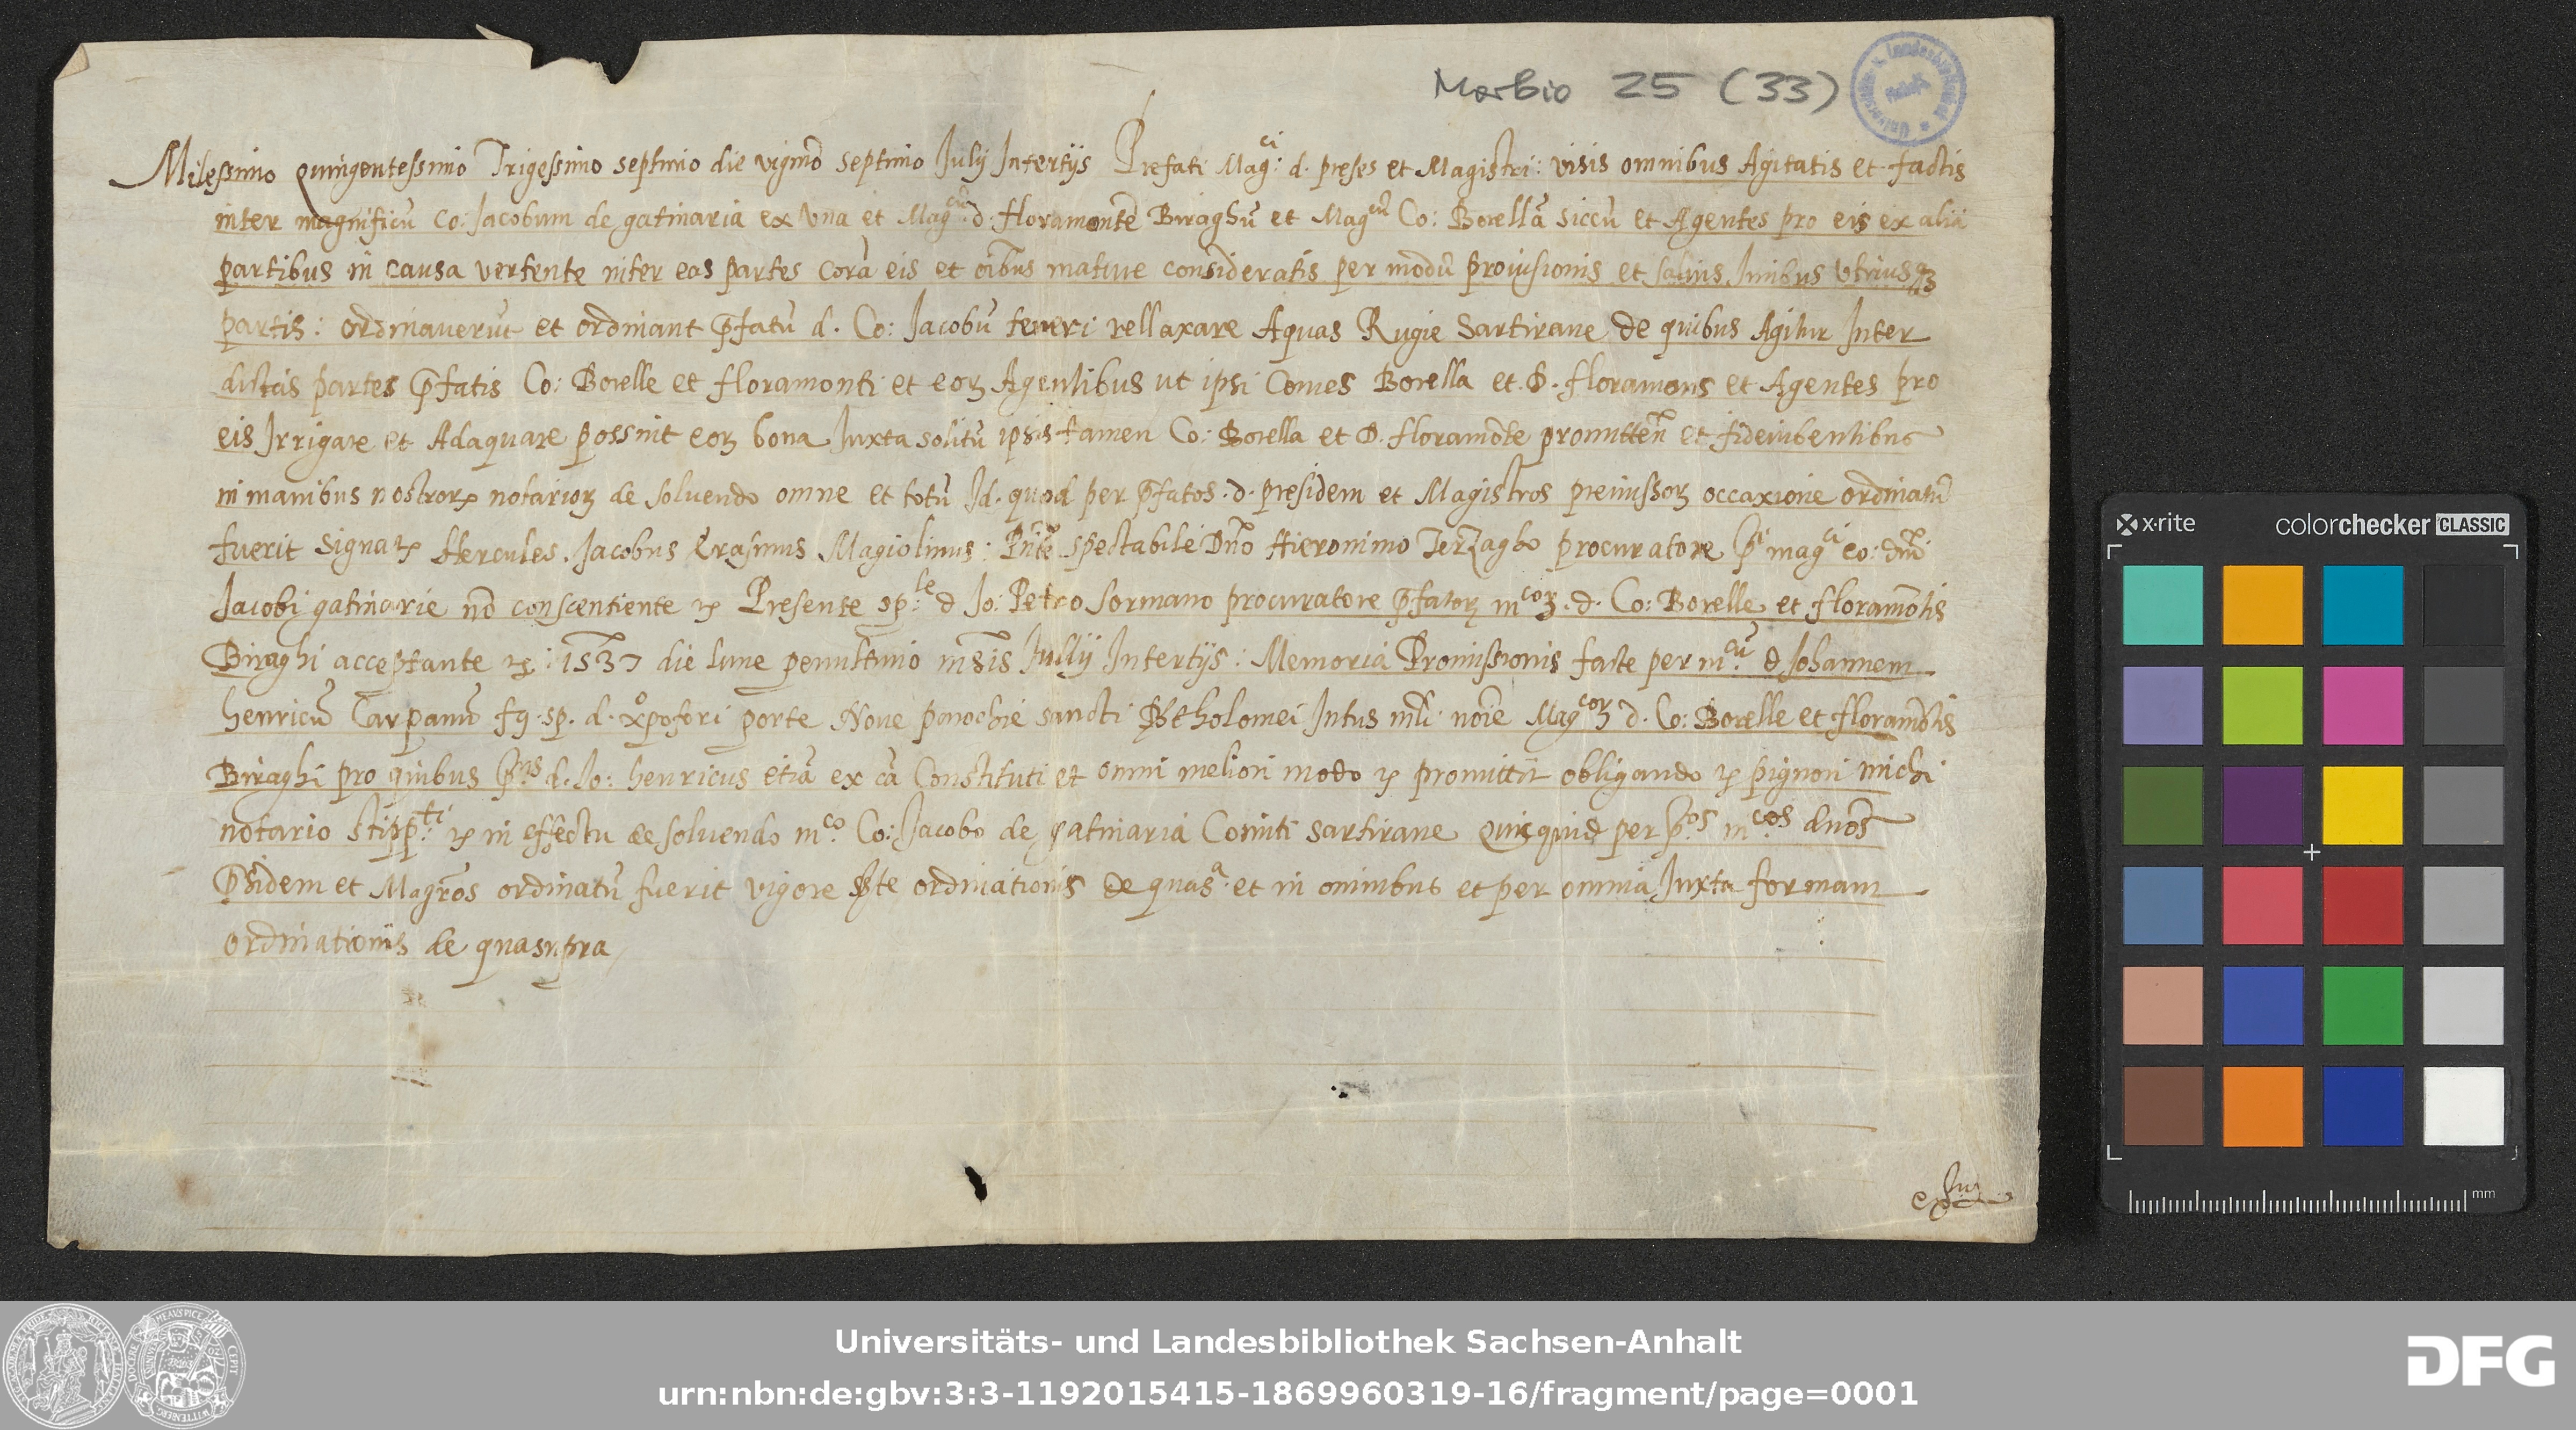 Morbio 25 (33)
Milessimo quingentessimo Trigessimo septimo die vigmo septimo Julij Intertijs Prefati Mag.ci d. preses et Magistri: visis omnibus Agitatis et factis
inter magnificũ Co: Jacobum de gatinaria ex Una et Mag.cũ d. floramontẽ Biraghũ et Mag.cũ Co: Borellã siccũ et Agentes pro eis ex alia
partibus in causa vertente inter eas partes Corã eis et oĩbus mature consideratis per modũ provisionis et salvis Juribus Utriusqꝫ
partis: ordinaverũt et ordinant p̃fatũ d. Co: Jacobũ teneri rellaxare Aquas Rugie Sartirane de quibus Agitur Inter
dictas partes p̃fatis Co: Borelle et floramonti et eoꝝ Agentibus ut ipsi Comes Borella et D. floramons et Agentes pro
eis Irrigare et Adaquare possint eoꝝ bona Juxta solitũ ipsis tamen Co: Borella et D. floramõte promittẽn et fideiubentibus
in manibus nostroꝝ notarioꝝ de solvendo omne et totũ Id. quod per p̃fatos .d. presidem et Magistros premissoꝝ occaxione ordinatũ
fuerit signaꝝ Hercules. Jacobus Erasmus Magiolinus: Pñte spectabile Dño Hieronimo Terzagho procuratore p.ti mag.ci co: dñi
Jacobi gatinarie nõ conscentiente ꝛc Presente sp:le d Jo: Petro Sormano procuratore p̃fatoꝝ m.coꝝ .d. Co: Borelle et floramõtis
Biraghi acceptante ꝛc: 1537 die lune penultimo mẽsis Jullij Intertijs: Memoria Promissionis facte per m.cũ d Johannem
henricũ Carpanũ fq. sp. d. xp̃ofori porte Nove parochie sancti Bt̃holomei Intus mli noĩe Mag.coꝝ d. Co: Borelle et floramõtis
Biraghi pro quibus p̃.ns d. Jo: henricus etiã ex cã Constituti et omni meliori modo ꝛc promittit obligando ꝛc pignori michi
notario stipp.ti ꝛc in effectu de solvendo m.co Co: Jacobo de gatinaria Comiti sartirane quicquid per p.os m.cos dños
p̃sidem et Magr̃os ordinatũ fuerit vigore ste ordinationis de quas.a et in omnibus et per omnia Juxta formam
ordinationis de quasupra
Universitäts- und Landesbibliothek Sachsen-Anhalt
urn:nbn:de:gbv:3:3-1192015415-1869960319-16/fragment/page=0001
DFG
x·rite colorchecker CLASSIC
mm